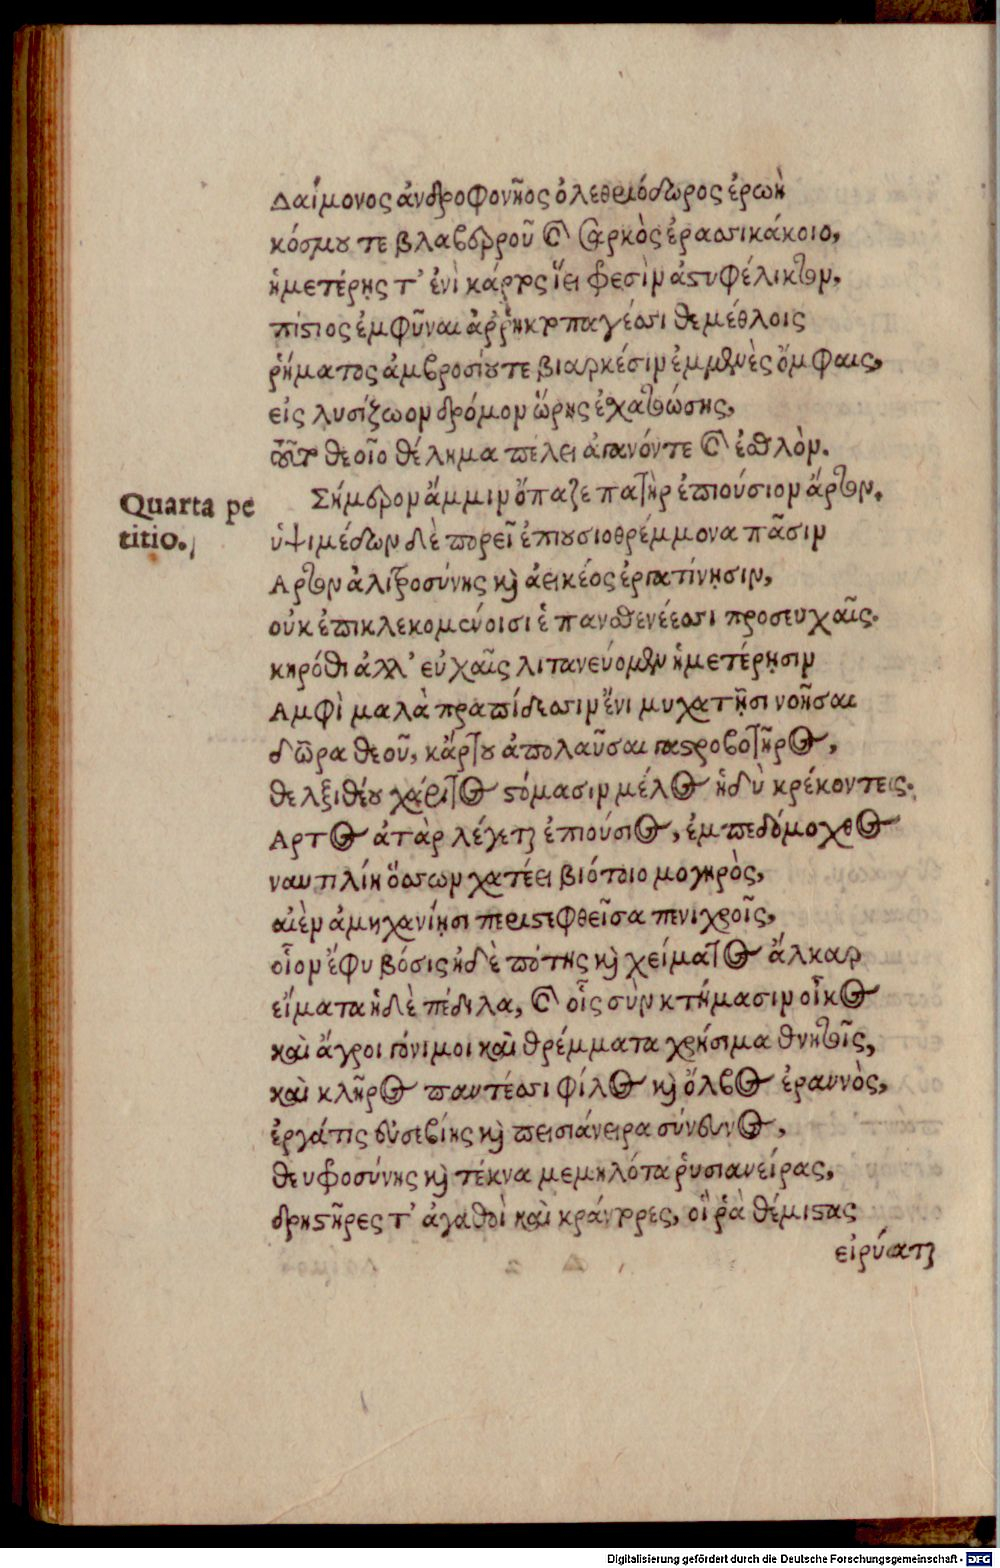 Δαίμονος ἀνδροφονῆος ὀλεθριόδωρος ἐρωὴ
κόσμου τε βλαβεροῦ καὶ σαρκὸς ἐρασικάκοιο,
ἡμετέρης τ' ἐνὶ κάρτος ἵει φρεσὶν ἀστυφέλικτον,
πίστιος ἐμφῦναι ἀῤῥήκτο παγέεσι θεμέθλοις
ῥήματος ἀμβροσίου τε βιαρκέσιν ἐμμενὲς ὄμφαις,
εἰς λυσίζωον δρόμον ὥρης ἐχατώσης,
θεοῖο θέλημα πέλει καὶ ἐσθλὸν.
Quarta pe
titio.
Σήμερον ἄμμιν ὄπαζε πατὴρ ἐπιούσιον ἄρτον.
ὑψιμέδων δὲ πορεῖ ἐπιουσιοθρέμμονα πᾶσιν
Αρτον ἀλιτροσύνης καὶ ἀεικέος ἐργατίνῃσιν,
οὐκ ἐπικλεκομένοισι ἑ πανσθενέεσι προσευχαῖς.
κηρόθι ἀλλ' εὐχαῖς λιτανεύομεν ἡμετέρῃσιν
Αμφὶ μαλὰ πραπίδεσιν ἔνι μυχατῇσι νοῆσαι
δῶρα θεοῦ, κἄρτου ἀπολαῦσαι γαστροβοτῆρος,
θελξιθέου χάριτος στόμασιν μέλος ἡδὺ κρέκοντες.
Αρτος ἀτὰρ λέγεται ἐπιούσιος, ἐμπεδόμοχθος
ναυτιλίη ὅσσων χατέει βιότοιο μογηρὸς,
αἰὲν ἀμηχανίῃσι περιστεφθεῖσα πενιχροῖς,
οἷον ἔφυ βόσις ἠδὲ πότης καὶ χείματος ἄλκαρ
εἵματα ἠδὲ πέδιλα, καὶ οἷς σὺν κτήμασιν οἶκος
καὶ ἄγροι γόνιμοι καὶ θρέμματα χρήσιμα θνητοῖς,
καὶ κλῆρος παντέσι φίλος καὶ ὄλβος ἐραννὸς,
ἐργάτις εὐσεβίης καὶ πεισιάνειρα σύνευνος,
θευφροσύνης καὶ τέκνα μεμηλότα ῥυσιανείρας,
δρηστῆρες τ' ἀγαθοὶ καὶ κράντορες, οἵ ῥὰ θέμιστας
εἰρύαται
Digitalisierung gefördert durch die Deutsche Forschungsgemeinschaft - DFG